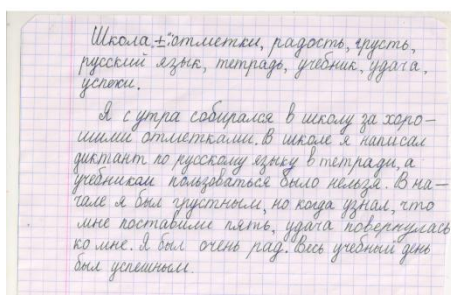 Школа, ±: отметки, радость, грусть,
русский язык, тетрадь, учебник, удача,
успехи.
Я с утра собирался в школу за хоро-
шими отметками. В школе я написал
диктант по русскому языку в тетради, а
учебником пользоваться было нельзя. В на-
чале я был грустным, но когда узнал, что
мне поставили пять, удача повернулась
ко мне. Я был очень рад. Весь учебный день
был успешным.